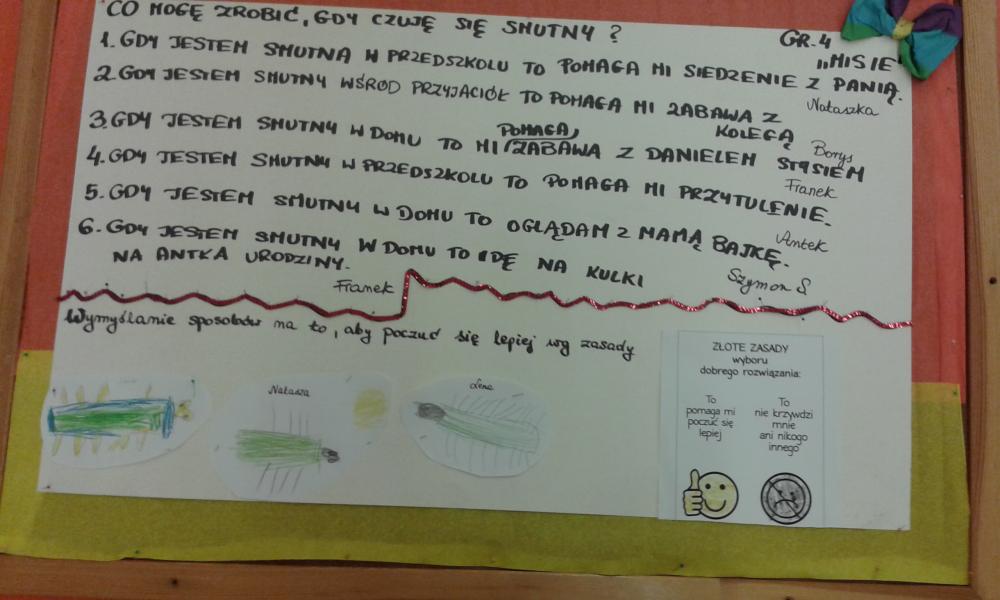 CO MOGĘ ZROBIĆ, GDY CZUJĘ SIĘ SMUTNY?
GR.4
"MISIE"
1. GDY JESTEM SMUTNA W PRZEDSZKOLU TO POMAGA MI SIEDZENIE Z PANIĄ.
Nataszka
2. GDY JESTEM SMUTNY WŚRÓD PRZYJACIÓŁ TO POMAGA MI ZABAWA Z
KOLEGĄ
Borys
3. GDY JESTEM SMUTNY W DOMU TO MI POMAGA, ZABAWA Z DANIELEM STASIEM
Franek
4. GDY JESTEM SMUTNY W PRZEDSZKOLU TO POMAGA MI PRZYTULENIE.
Antek
5. GDY JESTEM SMUTNY W DOMU TO OGLĄDAM Z MAMĄ BAJKĘ.
Szymon S
6. GDY JESTEM SMUTNY W DOMU TO IDĘ NA KULKI
NA ANTKA URODZINY.
Franek
Wymyślanie sposobów na to, aby poczuć się lepiej wg zasady
Natasza
Lena
ZŁOTE ZASADY
wyboru
dobrego rozwiązania:
To
pomaga mi
poczuć się
lepiej
To
nie krzywdzi
mnie
ani nikogo
innego